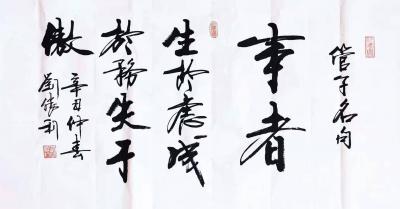 管子名句
事者
生於慮成
於務失于
傲
辛丑仲春
劉勝利